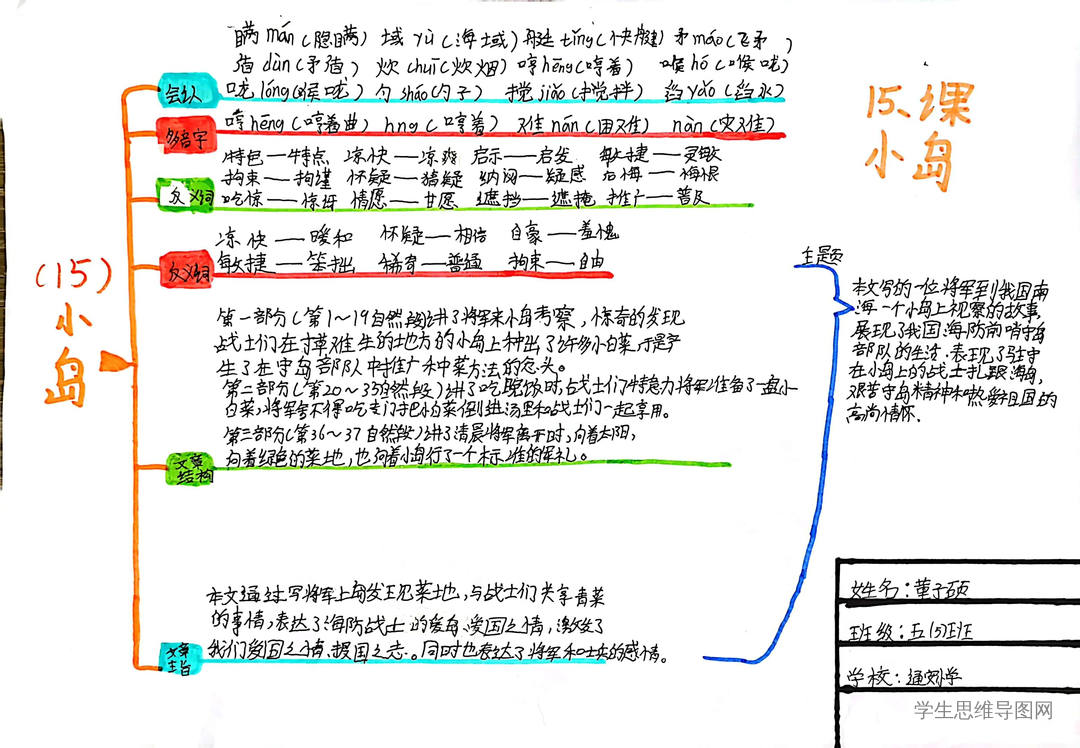 瞒 mán（隐瞒） 域 yù（海域）艇 tǐng（快艇）矛 máo（飞矛）
盾 dùn（矛盾） 炊 chuī（炊烟）哼 hēng（哼着） 喉 hó（喉咙）
会认 咙 lóng（喉咙） 勺 sháo（勺子） 搅 jiǎo（搅拌） 舀 yǎo（舀水）
多音字 哼 hēng（哼着曲） hng（哼着） 难 nán（困难） nàn（灾难）
特色——特点 凉快——凉爽 启示——启发 敏捷——灵敏
拘束——拘谨 怀疑——猜疑 纳闷——疑惑 后悔——悔恨
反义词 吃惊——惊讶 情愿——甘愿 遮挡——遮掩 推广——普及
凉快——暖和 怀疑——相信 自豪——羞愧
反义词 敏捷——笨拙 稀奇——普通 拘束——自由
15.课
小岛
（15）
小
岛
第一部分（第1～19自然段）讲了将军来小岛考察，惊奇的发现
战士们在寸草难生的地方的小岛上种出了许多小白菜，于是产
生了在守岛部队中推广种菜方法的念头。
第二部分（第20～35自然段）讲了吃晚饭时，战士们特意为将军准备了一盘小
白菜，将军舍不得吃专门把小白菜倒进汤里和战士们一起享用。
第三部分（第36～37自然段）讲了清晨将军离开时，向着太阳，
向着绿色的菜地，也向着小岛行了一个标准的军礼。
文章
结构
本文通过写将军上岛发现菜地，与战士们共享青菜
的事情，表达了海防战士的爱岛、爱国之情，激发了
我们爱国之情、报国之志。同时也表达了将军和士兵的感情。
文章
主旨
主题
本文写的一位将军到我国南
海一个小岛上视察的故事，
展现了我国海防前哨守岛
部队的生活，表现了驻守
在小岛上的战士扎跟海岛，
艰苦守岛精神和热爱祖国的
高尚情怀.
姓名：董子硕
班级：五（5）班
学校：
学生思维导图网